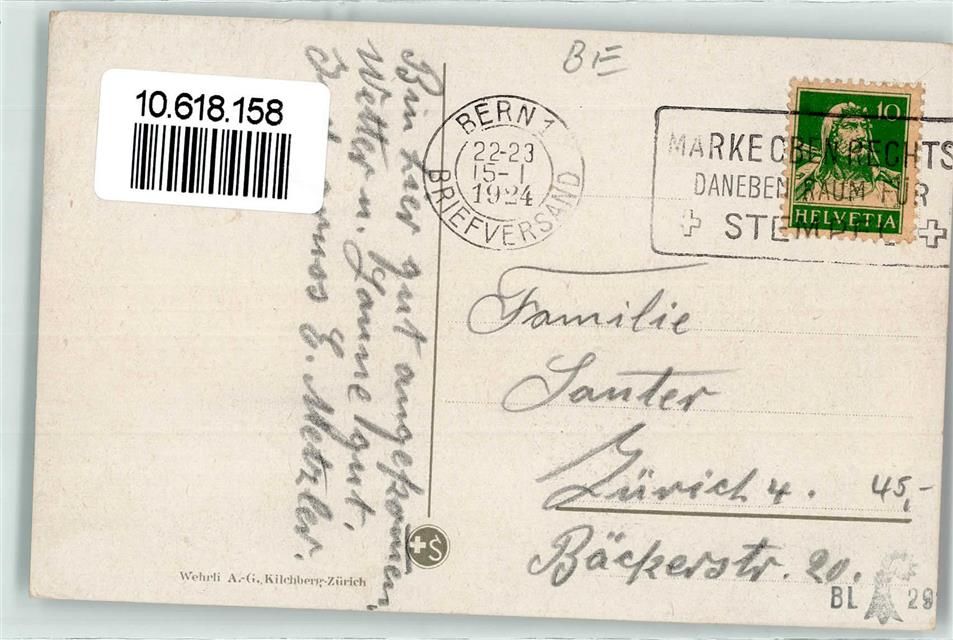 BE
10.618.158
BERN 1
22-23
15-I
1924
BRIEFVERSAND
MARKE OBEN RECHTS
DANEBEN RAUM FÜR
STEMPEL
10
HELVETIA
Bin hier gut angekommen,
Wetter u. Laune gut.
E. Metzler.
Familie
Sauter
Zürich 4.
45,-
Bäckerstr. 20.
S
Wehrli A.-G., Kilchberg-Zürich
BL 29